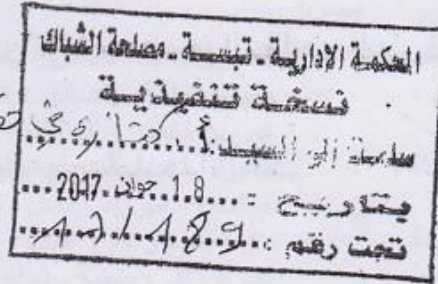 المحكمة الادارية - تبسة - مصلحة الشباك
نسخة تنفيذية
سلمت إلى السيد:أ.
بتاريخ : 18 جوان 2017
تحت رقم :